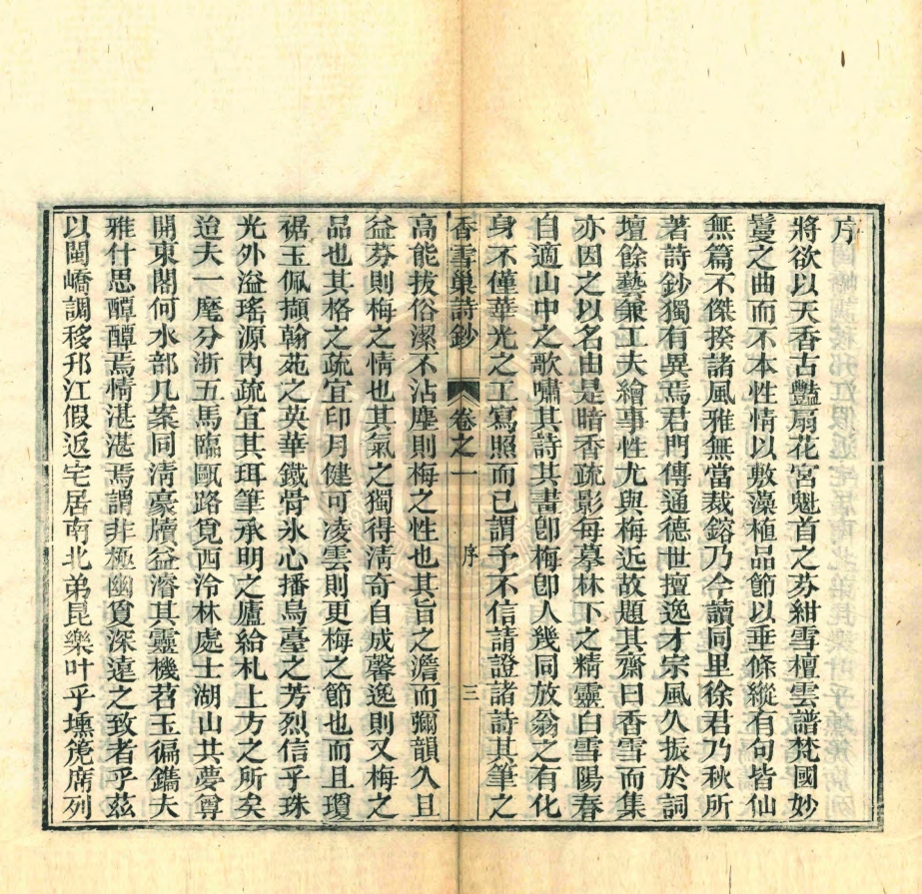 序
將欲以天香古豔扇花宮魁首之芬紺雪檀雲譜梵國妙
鬘之曲而不本性情以敷藻植品節以垂條縱有句皆仙
無篇不傑揆諸風雅無當裁鎔乃今讀同里徐君乃秋所
著詩鈔獨有異焉君門傳通德世擅逸才宗風久振於詞
壇餘藝兼工夫繪事性尤與梅近故題其齋曰香雪而集
亦因之以名由是暗香疏影每摹林下之精靈白雪陽春
自適山中之歌嘯其詩其畫卽梅卽人幾同放翁之有化
身不僅華光之工寫照而已謂予不信請證諸詩其筆之
香雪巢詩鈔 卷之一 序 三
高能拔俗潔不沾塵則梅之性也其旨之澹而彌韻久且
益芬則梅之情也其氣之獨得淸奇自成馨逸則又梅之
品也其格之疏宜印月健可凌雲則更梅之節也而且瓊
裾玉佩擷翰苑之英華鐵骨氷心播烏臺之芳烈信乎珠
光外溢瑤源內疏宜其珥筆承明之廬給札上方之所矣
迨夫一麾分浙五馬臨甌路覓西泠林處士湖山共夢尊
開東閣何水部几案同淸豪牘益濬其靈機苕玉徧鐫夫
雅什思醰醰焉情湛湛焉謂非極幽夐深遠之致者乎茲
以閩嶠調移邗江假返宅居南北弟昆樂叶乎壎箎席列